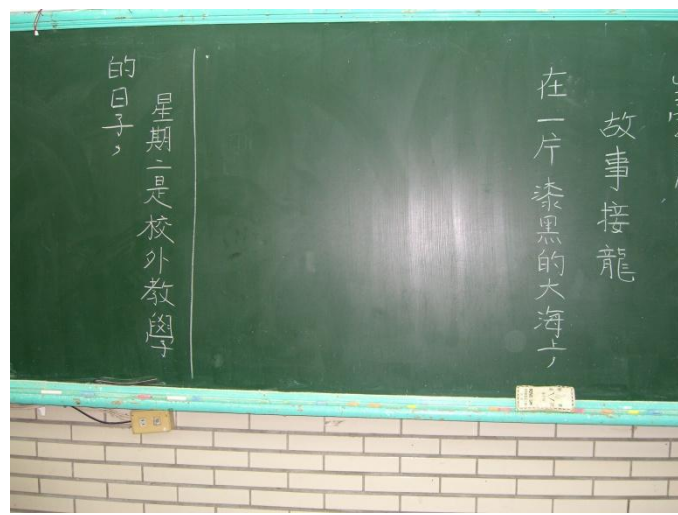 故事接龍
在一片漆黑的大海上,
星期二是校外教學
的日子,